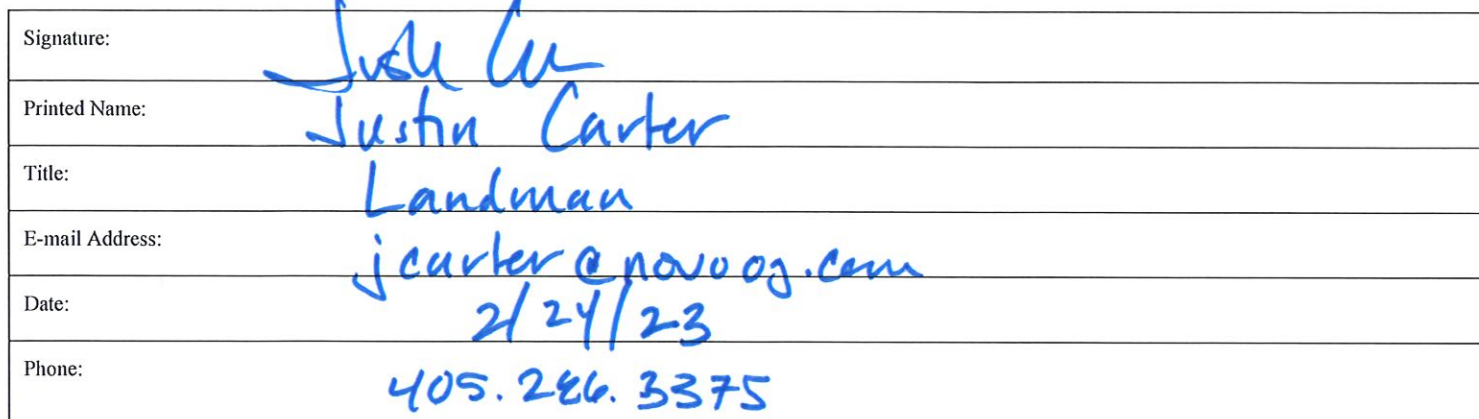 Signature:
Printed Name: Justin Carter
Title: Landman
E-mail Address: jcarter@novoog.com
Date: 2/24/23
Phone: 405.286.3375